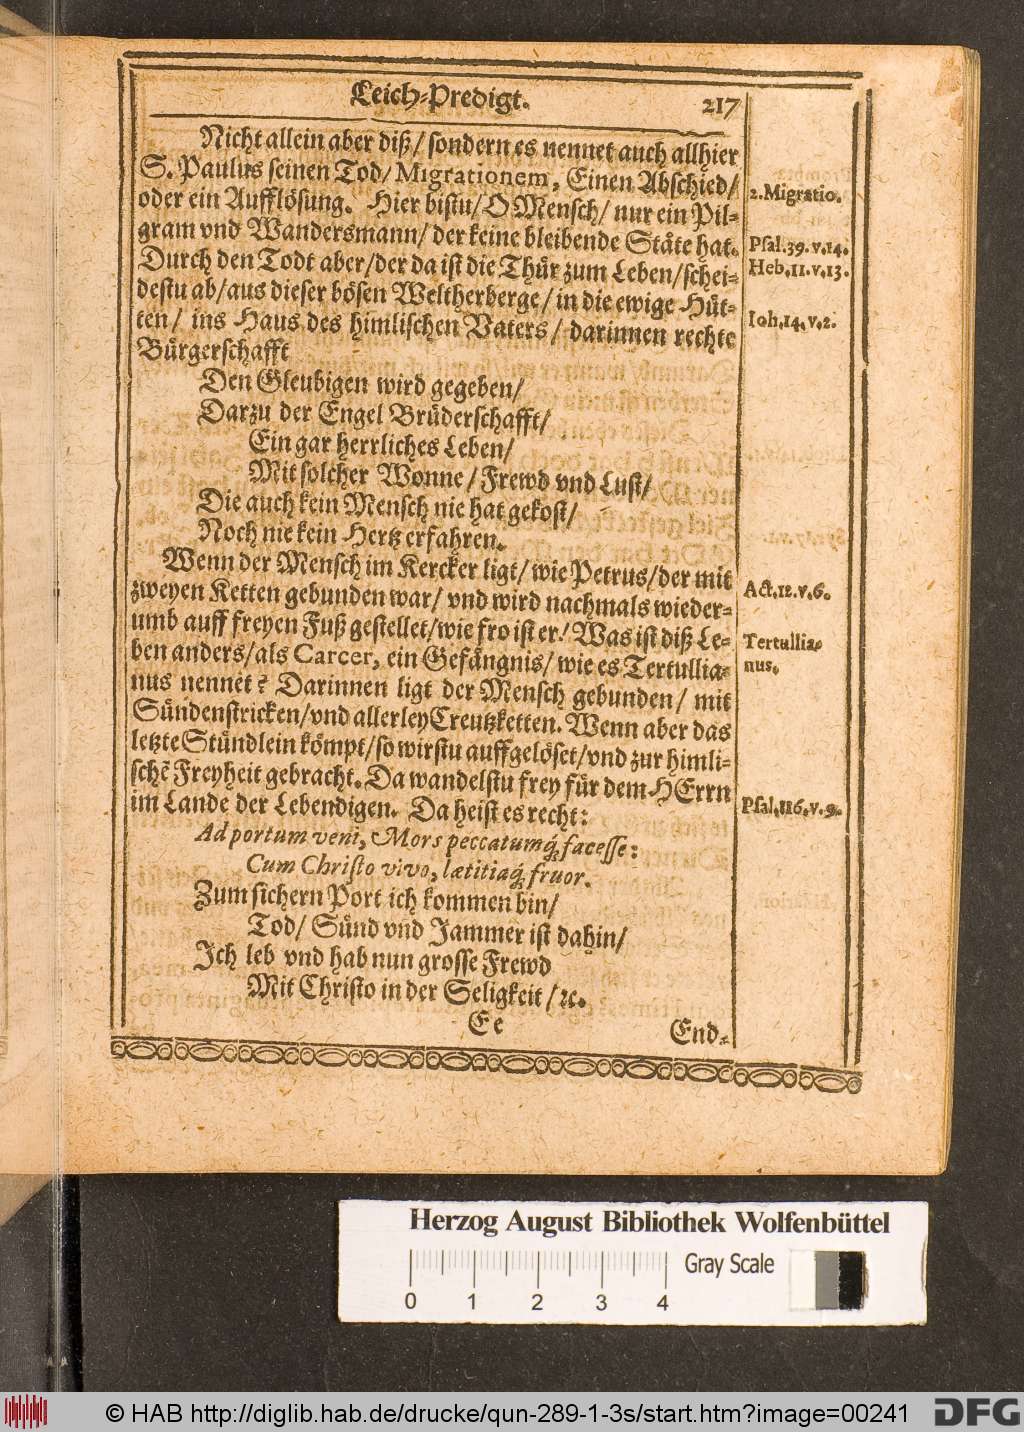 Leich-Predigt. 217
Nicht allein aber diß/ sondern es nennet auch allhier
S. Paulus seinen Tod/ Migrationem, Einen Abschied/
oder ein Aufflösung. Hier bistu/ O Mensch/ nur ein Pil-
gram vnd Wandersmann/ der keine bleibende Stäte hat.
Durch den Todt aber/ der da ist die Thür zum Leben/ schei-
destu ab/ aus dieser bösen Weltherberge/ in die ewige Hüt-
ten/ ins Haus des himlischen Vaters/ darinnen rechte
Bürgerschafft
Den Gleubigen wird gegeben/
Darzu der Engel Brüderschafft/
Ein gar herrliches Leben/
Mit solcher Wonne/ Frewd vnd Lust/
Die auch kein Mensch nie hat gekost/
Noch nie kein Hertz erfahren.
Wenn der Mensch im Kercker ligt/ wie Petrus/ der mit
zweyen Ketten gebunden war/ vnd wird nachmals wieder-
umb auff freyen Fuß gestellet/ wie fro ist er! Was ist diß Le-
ben anders/ als Carcer, ein Gefängnis/ wie es Tertullia-
nus nennet? Darinnen ligt der Mensch gebunden/ mit
Sündenstricken/ vnd allerley Creutzketten. Wenn aber das
letzte Stündlein kömpt/ so wirstu auffgelöset/ vnd zur himli-
schẽ Freyheit gebracht. Da wandelstu frey für dem HErrn
im Lande der Lebendigen. Da heist es recht:
Ad portum veni, Mors peccatumq́; facesse:
Cum Christo vivo, lætitiaq́; fruor.
Zum sichern Port ich kommen bin/
Tod/ Sünd vnd Jammer ist dahin/
Ich leb vnd hab nun grosse Frewd
Mit Christo in der Seligkeit/ ꝛc.
Ee End-
2. Migratio.
Psal. 39. v. 14.
Heb. 11. v. 13.
Ioh. 14. v. 2.
Act. 12. v. 6.
Tertullia-
nus.
Psal. 116. v. 9.
Herzog August Bibliothek Wolfenbüttel
Gray Scale
0 1 2 3 4
© HAB http://diglib.hab.de/drucke/qun-289-1-3s/start.htm?image=00241
DFG